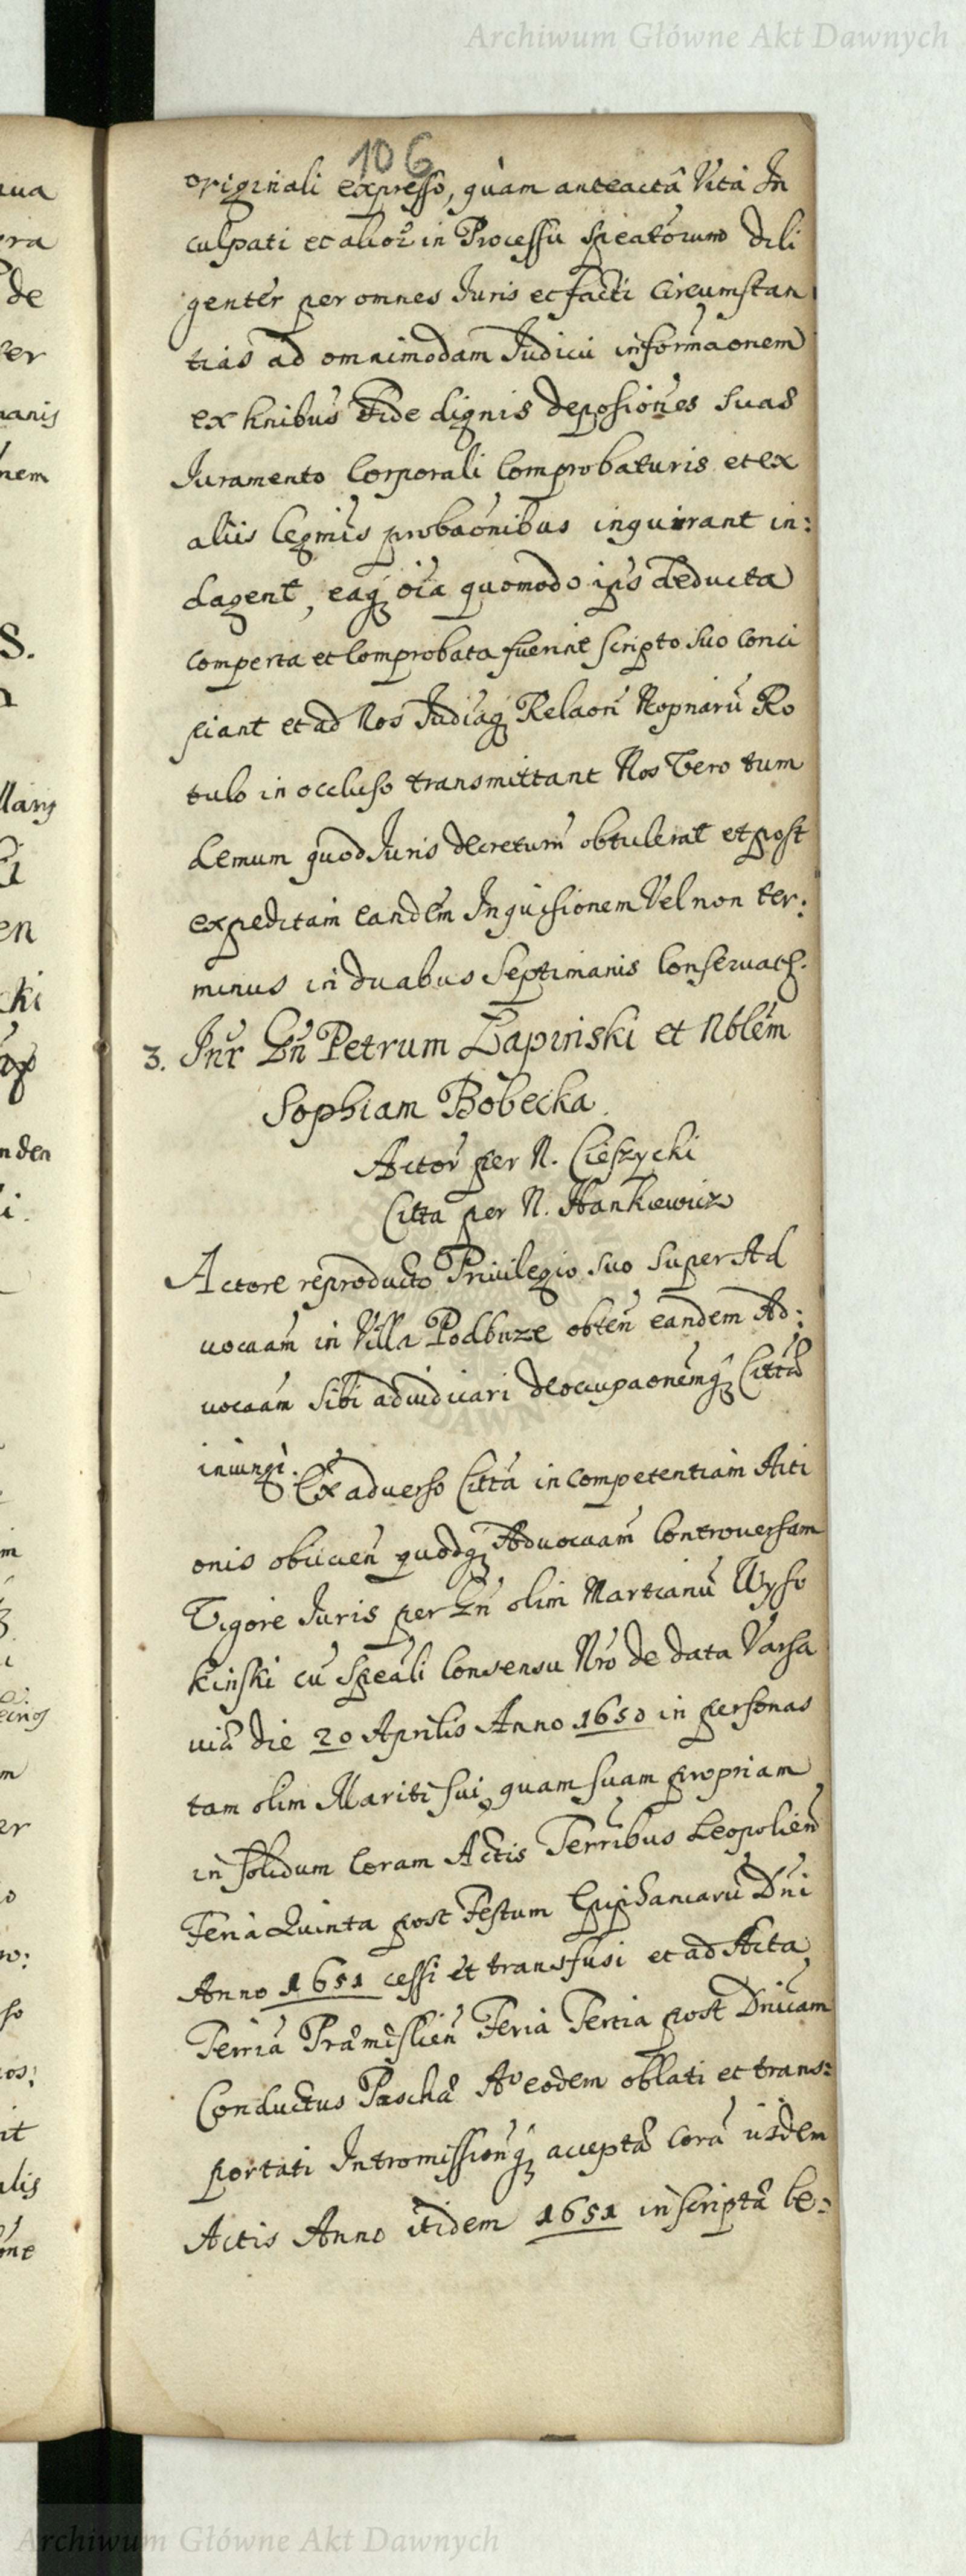 Archiwum Główne Akt Dawnych
106
originali expresso, quam anteactâ Vita In
culpati et alior in Processu spéatorum dili
genter per omnes Juris et facti Circumstan
tias ad omnimodam Judicii informãonem
ex hnibus fide dignis deposiones suas
Juramento Corporali Comprobaturis et ex
aliis legmis probaonibus inquirant in:
dagent, eaq oia quomodo ips deducta
comperta et Comprobata fuerint scripto suo Conci
piant et ad Nos Judiaq Relaon Nopnarū Ro
tulo in occluso transmittant Nos Vero tum
demum quod Juris decretum obtulerat et post
expeditam eandem Inquisionem Vel non ter:
minus in duabus Septimanis Conservat.
3. Inr Gn Petrum Łapinski et Nblem
Sophiam Bobecka.
Actor per N. Cieszycki
Citta per N. Hankiewicz
Actore reproducto Privilegio suo super Ad
uocaam in Villa Podbuze obten eandem Ad:
uocaam sibi adiudicari deoccupaonemq Citta
iniungi.
Ex adverso Citta incompetentiam Aiti
onis obiicien quodq Aduocaam Controversam
Vigore Juris per Gn olim Martianū Wyso
kinski cu Speali Consensu Nro de data Varsa
uia die 20 Aprilis Anno 1650 in personas
tam olim Mariti sui, quam suam propriam
in solidum Coram Actis Terribus Leopolien
Feria Quinta post Festum Epiphaniarū Dni
Anno 1651 cessi et transfusi et ad Acta
Terria Præmislien Feria Tertia post Dnicam
Conductus Pascha Aº eodem oblati et trans:
portati Intromissionq accepta Corā iisdem
Actis Anno itidem 1651 inscripta be:
Archiwum Główne Akt Dawnych